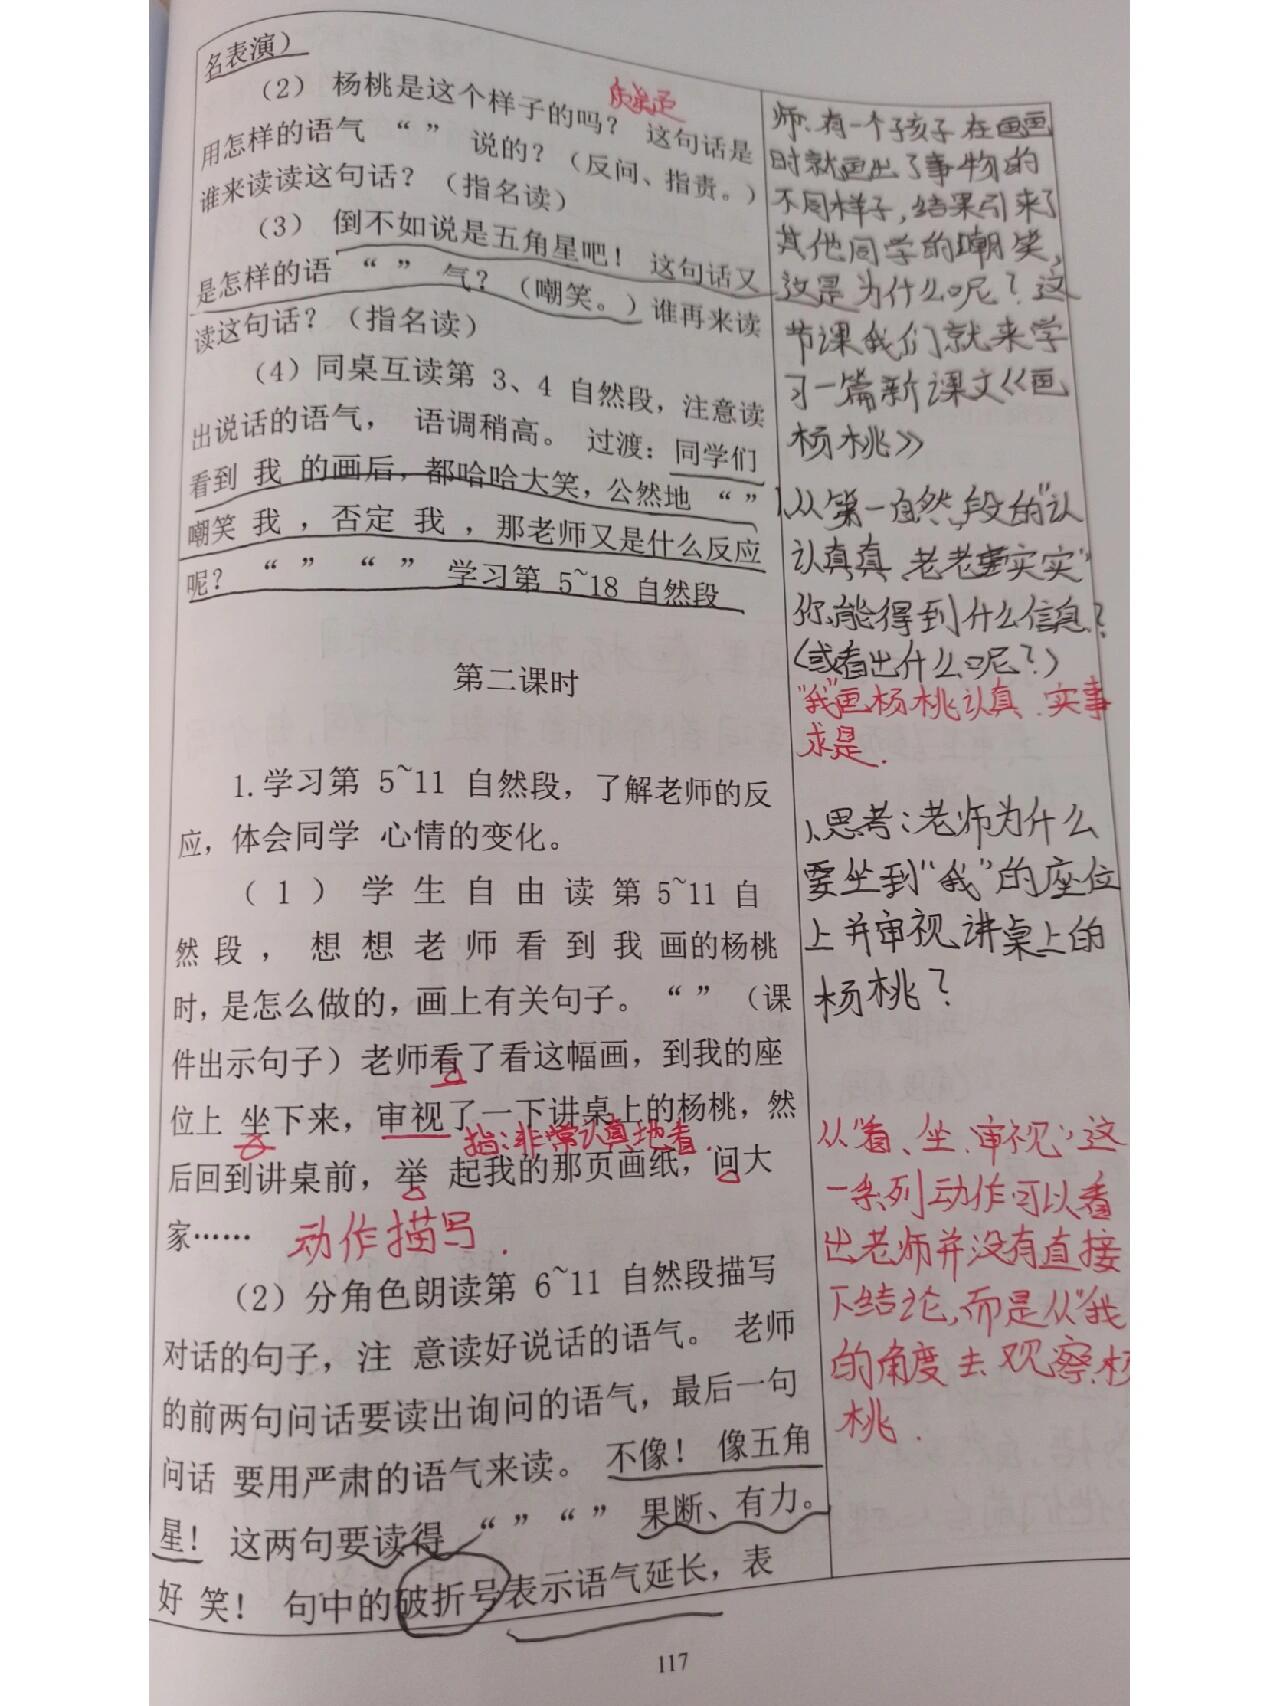 名表演）
（2） 杨桃是这个样子的吗？ 这句话是
用怎样的语气 “ ” 说的？（反问、指责。）
谁来读读这句话？（指名读）
（3） 倒不如说是五角星吧！ 这句话又
是怎样的语 “ ” 气？（嘲笑。）谁再来读
读这句话？（指名读）
（4）同桌互读第 3、4 自然段，注意读
出说话的语气， 语调稍高。 过渡：同学们
看到 我 的画后，都哈哈大笑，公然地 “ ”
嘲笑 我 ，否定 我 ，那老师又是什么反应
呢？ “ ” “ ” 学习第 5~18 自然段
第二课时
1.学习第 5~11 自然段，了解老师的反
应，体会同学 心情的变化。
（1）学生自由读第 5~11 自
然段， 想想老师看到我 画的杨桃
时，是怎么做的，画上有关句子。 “ ” （课
件出示句子）老师看了看这幅画，到我的座
位上 坐下来， 审视了一下讲桌上的杨桃，然
指：非常认真地看.
后回到讲桌前， 举 起我的那页画纸，问大
家…… 动作描写.
（2）分角色朗读第 6~11 自然段描写
对话的句子，注 意读好说话的语气。 老师
的前两句问话要读出询问的语气，最后一句
问话 要用严肃的语气来读。 不像！ 像五角
星！ 这两句要读得 “ ” “ ” 果断、有力。
好 笑！ 句中的破折号表示语气延长，表
师：有一个孩子在画画
时就画出了事物的
不同样子，结果引来了
其他同学的嘲笑，
这是为什么呢？这
节课我们就来学
习一篇新课文《画
杨桃》
1、从第一自然段的“认
认真真、老老实实”
你能得到什么信息？
（或看出什么呢？）
“我”画杨桃认真、实事
求是.
1、思考：老师为什么
要坐到“我”的座位
上并审视讲桌上的
杨桃？
从“看、坐、审视”这
一系列动作可以看
出老师并没有直接
下结论，而是从“我
的角度去观察杨
桃.
117